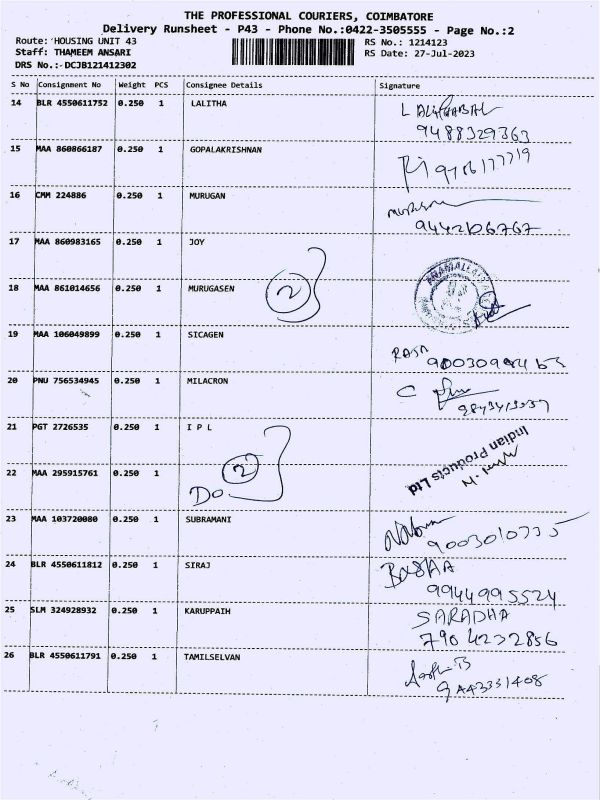 THE PROFESSIONAL COURIERS, COIMBATORE
Delivery Runsheet - P43 - Phone No.:0422-3505555 - Page No.:2
Route: HOUSING UNIT 43
RS No.: 1214123
Staff: THAMEEM ANSARI
RS Date: 27-Jul-2023
DRS No.:-DCJB121412302
S No Consignment No Weight PCS Consignee Details Signature
14 BLR 4550611752 0.250 1 LALITHA
9488329363
15 MAA 860866187 0.250 1 GOPALAKRISHNAN
16 CMM 224886 0.250 1 MURUGAN
9442106767
17 MAA 860983165 0.250 1 JOY
18 MAA 861014656 0.250 1 MURUGASEN
2
19 MAA 106049899 0.250 1 SICAGEN
20 PNU 756534945 0.250 1 MILACRON
21 PGT 2726535 0.250 1 I P L
Indian Products Ltd
22 MAA 295915761 0.250 1
2
Do
23 MAA 103720080 0.250 1 SUBRAMANI
24 BLR 4550611812 0.250 1 SIRAJ
9944995524
25 SLM 324928932 0.250 1 KARUPPAIH
SARADHA
7904232856
26 BLR 4550611791 0.250 1 TAMILSELVAN